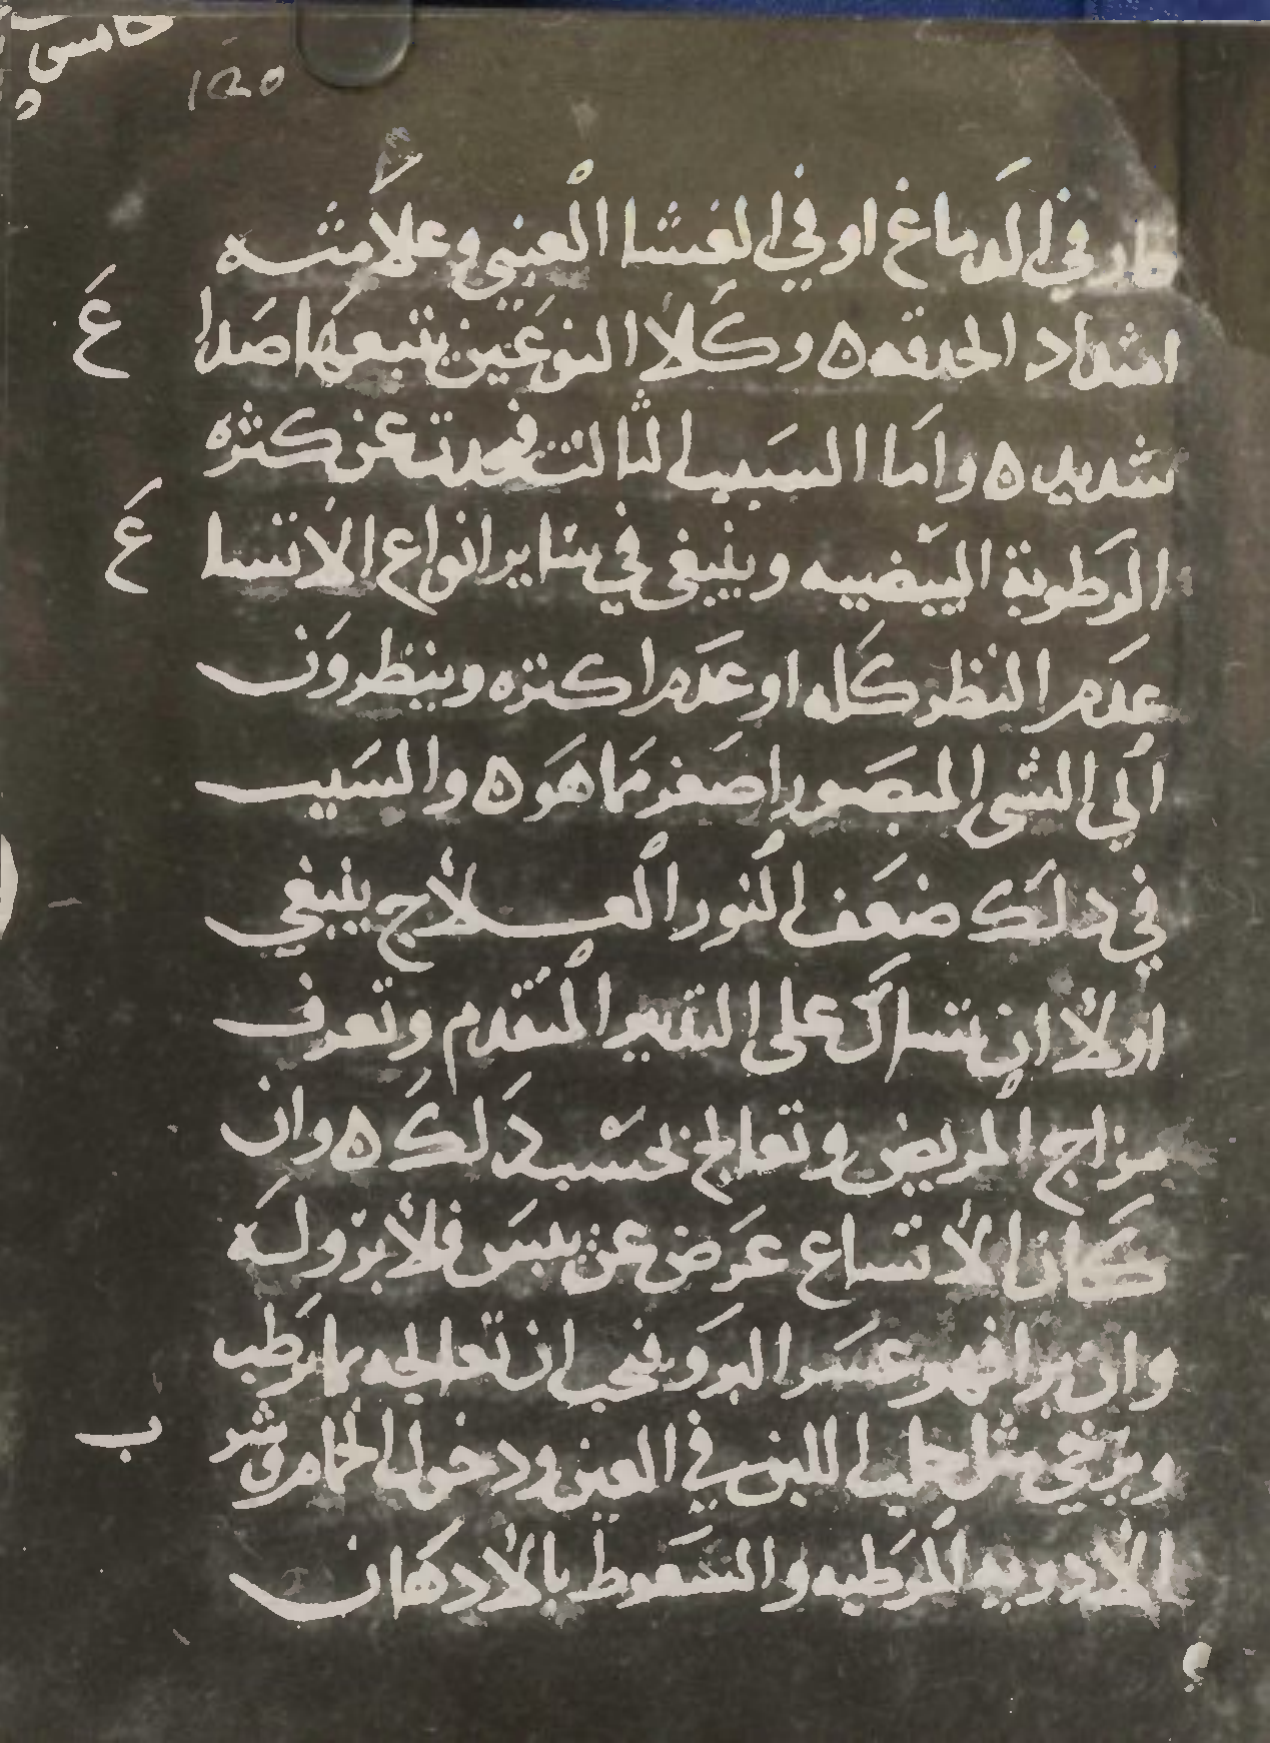 خامس
١٢٥
حار في الدماغ او في الغشا العنبي وعلامته
امتداد الحدقه ه وكلا النوعين يتبعها صدا ع
شديد ه واما السبب الثالث فيحدث عن كثره
الرطوبة البيضيه وينبغي في ساير انواع الاتسا ع
عدم النظر كله او عدم اكثره وينظرون
الي الشي المبصور اصغر مما هو ه والسبب
في دلك ضعف النور العلاج ينبغي
اولا ان تسلك على التدبير المتقدم وتعرف
مزاج المريض وتعالج بحسب ذلك ه وان
كان الاتساع عرض عن يبس فلا برو له
وان برا فهو عسر البرو فيجب ان تعالجه بما يرطب
ويرخي مثل حليب اللبن في العين ودخول الحمام وشر ب
الادويه المرطبه والسعوط بالادهان